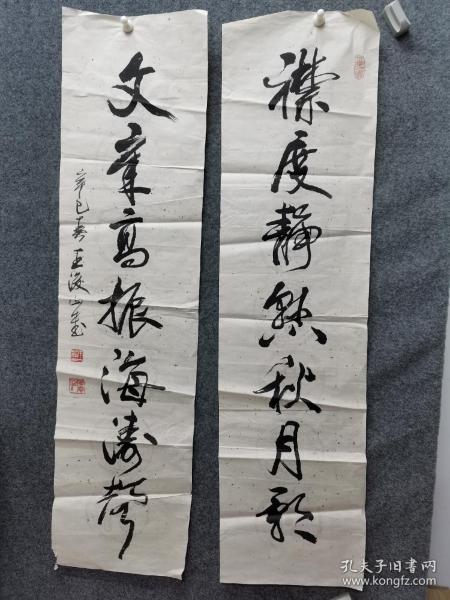 襟度静懸秋月
文章高振海濤聲
辛巳春王
孔夫子旧书网
www.kongfz.com